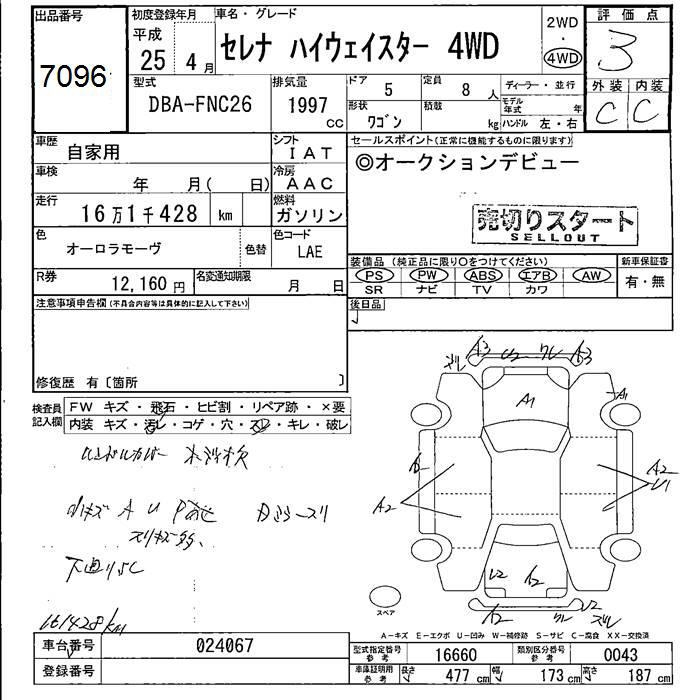 出品番号
7096
初度登録年月
平成
25年 4月
車名・グレード
セレナ ハイウェイスター 4WD
2WD
・
4WD
評価点
3
外装 内装
C C
型式
DBA-FNC26
排気量
1997 CC
ドア 5
定員 8人
ディーラー・並行
形状 ワゴン
積載 kg
モデル年式 年
ハンドル 左・右
車歴
自家用
シフト
IAT
セールスポイント(正常に機能するものに限ります)
◎オークションデビュー
車検 年 月( 日)
冷房
AAC
走行
16万1千428 km
燃料
ガソリン
売切りスタート
SELLOUT
色
オーロラモーヴ
色替
色コード
LAE
装備品 (純正品に限り○をつけてください)
新車保証書
PS PW ABS エアB AW
有・無
SR ナビ TV カワ
R券
12,160円
名変通知期限
月 日
後日品
注意事項申告欄(不具合内容等は具体的に記入して下さい)
修復歴 有〔箇所 〕
検査員記入欄
FW キズ・飛石・ヒビ割・リペア跡・×要
内装 キズ・汚レ・コゲ・穴・スレ・キレ・破レ
ハンドルカバー
小キズ A U
スリキズ多、
161428km
A3 U2 ワレ A3
A1
A1
A2
A2
U1
U2 A2
A2 U2
スペア
A-キズ E-エクボ U-凹み W-補修跡 S-サビ C-腐食 XX-交換済
車台番号
024067
登録番号
型式指定番号 参考
16660
類別区分番号 参考
0043
車庫証明用 参考
長さ 477cm 幅 173cm 高さ 187cm